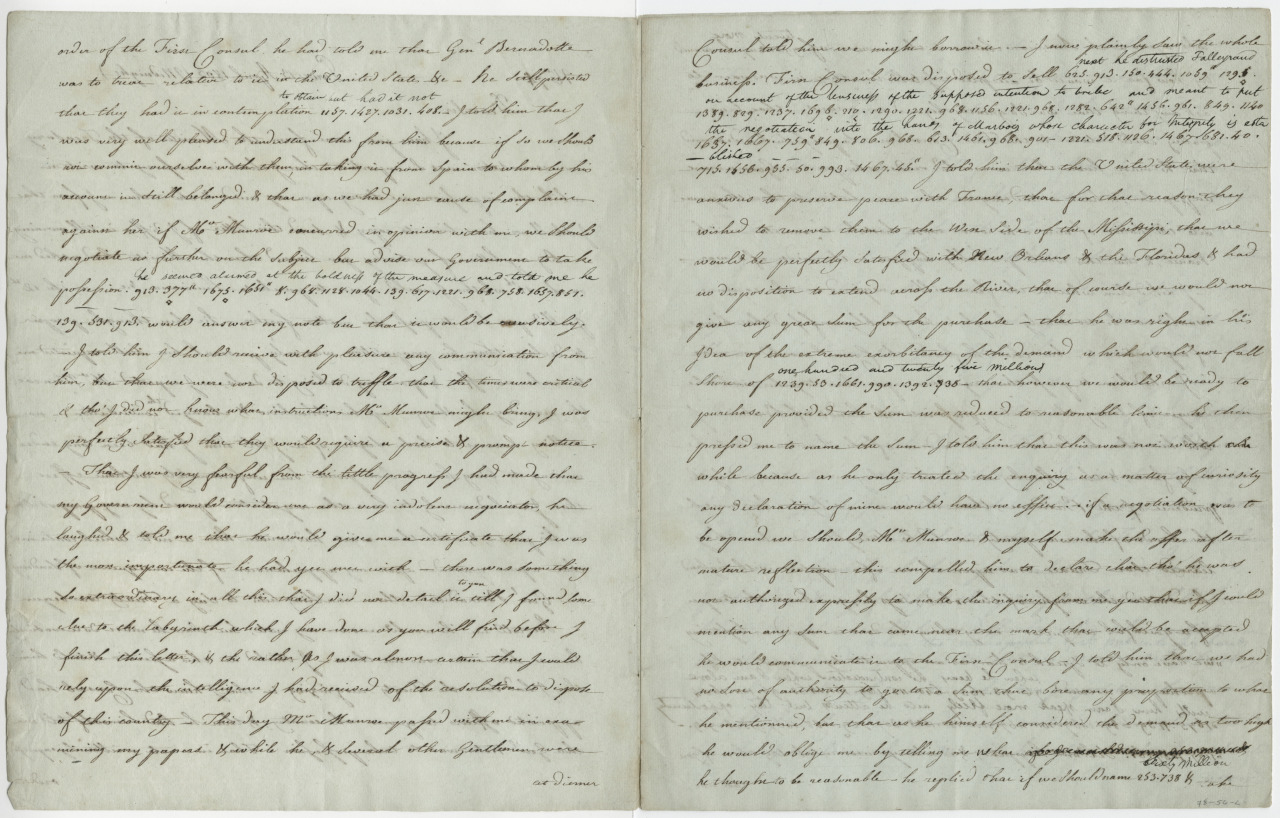 order of the First Consul, he had told me that Genl Bernadotte
was to treat relative to it in the United States &c - He still persisted
to obtain it but had it not
that they had it in contemplation 1157. 1427. 1031. 408. - I told him that I
was very well pleased to understand this from him because if so we should
not commit ourselves with them in taking it from Spain to whom by his
account it still belonged & that as we had just cause of complaint
against her if Mr Munroe concurred in opinion with me, we should
negotiate no further on the subject but advise our Government to take
he seemed alarmed at the boldness of the measure and told me he
possession. 913. 377. 1675. 1651. 8. 968. 1128. 1044. 139. 617. 1221. 968. 758. 1657. 851.
139. 531. 913. would answer my note but that it would be evasively.
- I told him I should receive with pleasure any communication from
him, but that we were not disposed to triffle that the times were critical
& tho' I did not know what instructions Mr Munroe might bring, I was
perfectly satisfied that they would require a precise & prompt notice.
- That I was very fearful from the little progress I had made that
my Government would consider me as a very indolent negociator, he
laughed & told me that he would give me a certificate that I was
the most importunate he had yet met with - there was something
to you
so extraordinary in all this that I did not detail it till I found some
clue to the labyrinth which I have done as you will find before I
finish this letter, & the rather as I was almost certain that I could
rely upon the intelligence I had received of the resolution to dispose
of this country - This day Mr Munroe passed with me in exa-
mining my papers & while he & several other Gentlemen were
at dinner
Consul told him we might borrow it. - I now plainly saw the whole
next he distrusted Talleyrand
business. First Consul was disposed to sell 625. 913. 150. 444. 1059. 1295.
on account of the business of the supposed intention to bribe and meant to put
1389. 829. 1237. 1696. 210. 1290. 1221. 968. 1156. 1221. 968. 1282. 642. 1456. 961. 849. 1140
the negotiation into the hands of Marbois whose character for Integrity is esta
1657. 1667. 759. 849. 806. 968. 613. 1401. 968. 901 - 1221. 518. 426. 1467. 681. 40.
- blished
715. 1656. 955. 50. 993. 1467. 45. I told him that the United States were
anxious to preserve peace with France, that for that reason they
wished to remove them to the West Side of the Mississipi, that we
would be perfectly satisfied with New Orleans & the Floridas, & had
no disposition to extend across the River, that of course we would not
give any great sum for the purchase - that he was right in his
Idea of the extreme exorbitancy of the demand which would not fall
one hundred and twenty five millions
short of 1239. 53. 1661. 990. 1392. 938 - that however we would be ready to
purchase provided the sum was reduced to reasonable limits - he then
pressed me to name the sum - I told him that this was not worth
while because as he only treated the enquiry as a matter of curiosity
any declaration of mine would have no effect - if a negotiation was to
be opened we should, Mr Munroe & myself make the offer after
mature reflection - this compelled him to declare that tho' he was
not authorized expressly to make the inquiry from me yet that if I could
mention any sum that came near the mark that could be accepted
he would communicate it to the First Consul - I told him that we had
no sort of authority to go to a sum that bore any proportion to what
he mentioned, but that as he himself considered the demand as too high
he would oblige me by telling me what
Sixty Million
he thought to be reasonable - he replied that if we should name 253. 738 &
78-56-L